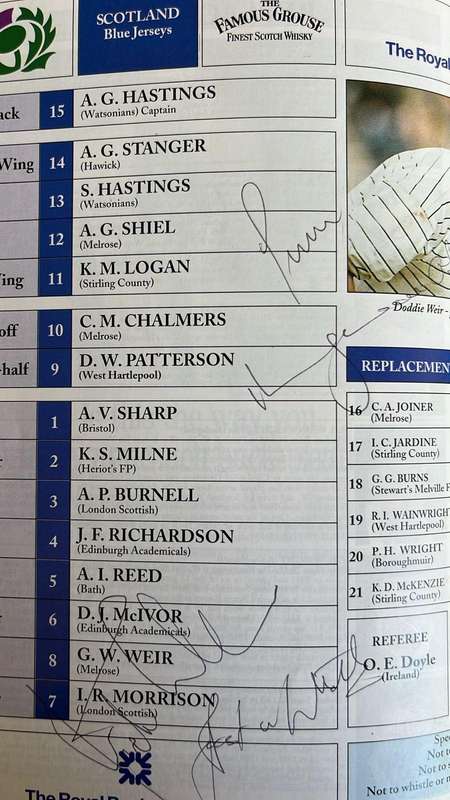 SCOTLAND
Blue Jerseys
THE
FAMOUS GROUSE
FINEST SCOTCH WHISKY
The Royal
ack 15 A. G. HASTINGS
(Watsonians) Captain
Wing 14 A. G. STANGER
(Hawick)
13 S. HASTINGS
(Watsonians)
12 A. G. SHIEL
(Melrose)
Ving 11 K. M. LOGAN
(Stirling County)
off 10 C. M. CHALMERS
(Melrose)
-half 9 D. W. PATTERSON
(West Hartlepool)
1 A. V. SHARP
(Bristol)
2 K. S. MILNE
(Heriot's FP)
3 A. P. BURNELL
(London Scottish)
4 J. F. RICHARDSON
(Edinburgh Academicals)
5 A. I. REED
(Bath)
6 D. J. McIVOR
(Edinburgh Academicals)
8 G. W. WEIR
(Melrose)
7 I. R. MORRISON
(London Scottish)
Doddie Weir -
REPLACEMEN
16 C. A. JOINER
(Melrose)
17 I. C. JARDINE
(Stirling County)
18 G. G. BURNS
(Stewart's Melville F
19 R. I. WAINWRIGH
(West Hartlepool)
20 P. H. WRIGHT
(Boroughmuir)
21 K. D. McKENZIE
(Stirling County)
REFEREE
O. E. Doyle
(Ireland)
Spe
Not t
Not to s
Not to whistle or m
The Royal B